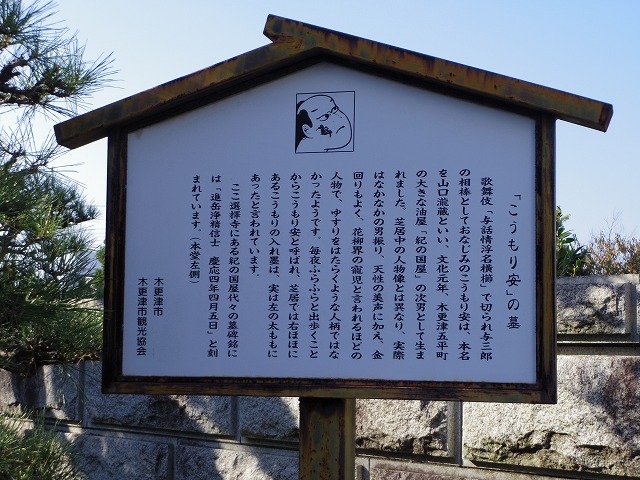 「こうもり安」の墓
歌舞伎「与話情浮名横櫛」で切られ与三郎
の相棒としておなじみのこうもり安は、本名
を山口瀧蔵といい、文化元年、木更津五平町
の大きな油屋「紀の国屋」の次男として生ま
れました。芝居中の人物像とは異なり、実際
はなかなかの男振り、天性の美声に加え、金
回りもよく、花柳界の寵児と言われるほどの
人物で、ゆすりをはたらくような人柄ではな
かったようです。毎夜ふらふらと出歩くこと
からこうもり安と呼ばれ、芝居では右ほほに
あるこうもりの入れ墨は、実は左の太ももに
あったと言われています。
ここ選擇寺にある紀の国屋代々の墓碑銘に
は「進岳浄精信士 慶応四年四月五日」と刻
まれています。（本堂左側）
木更津市
木更津市観光協会